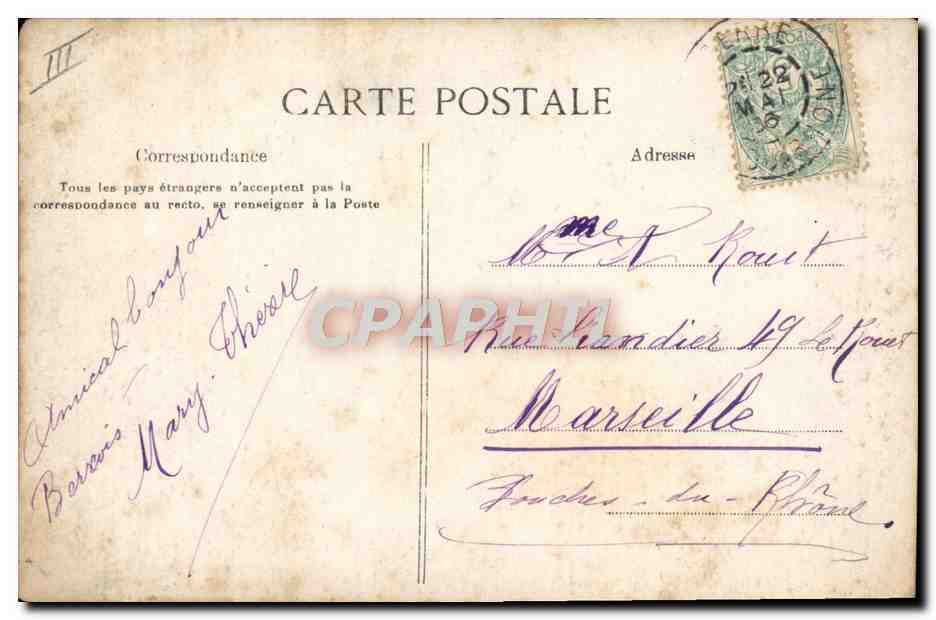 III
CARTE POSTALE
Correspondance
Tous les pays étrangers n'acceptent pas la
correspondance au recto, se renseigner à la Poste
Amical bonjour
Mary. Thérèse
Adresse
22
MAI
Mme A Rouit
Rue 49 Le Rouet
Marseille
Bouches-du-Rhône.
CPAPHIL